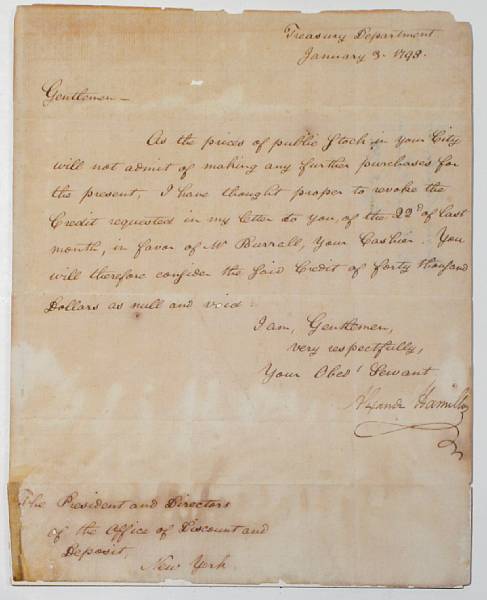 Treasury Department
January 3. 1793.
Gentlemen —
As the prices of public Stock in your City
will not admit of making any further purchases for
the present, I have thought proper to revoke the
Credit requested in my letter to you, of the 22d of last
month, in favor of Mr Burrall, Your Cashier. You
will therefore consider the said Credit of forty thousand
Dollars as null and void.
I am, Gentlemen,
very respectfully,
Your Obedt Servant
Alexandr Hamilton
The President and Directors
of the Office of Discount and
Deposit
New York.